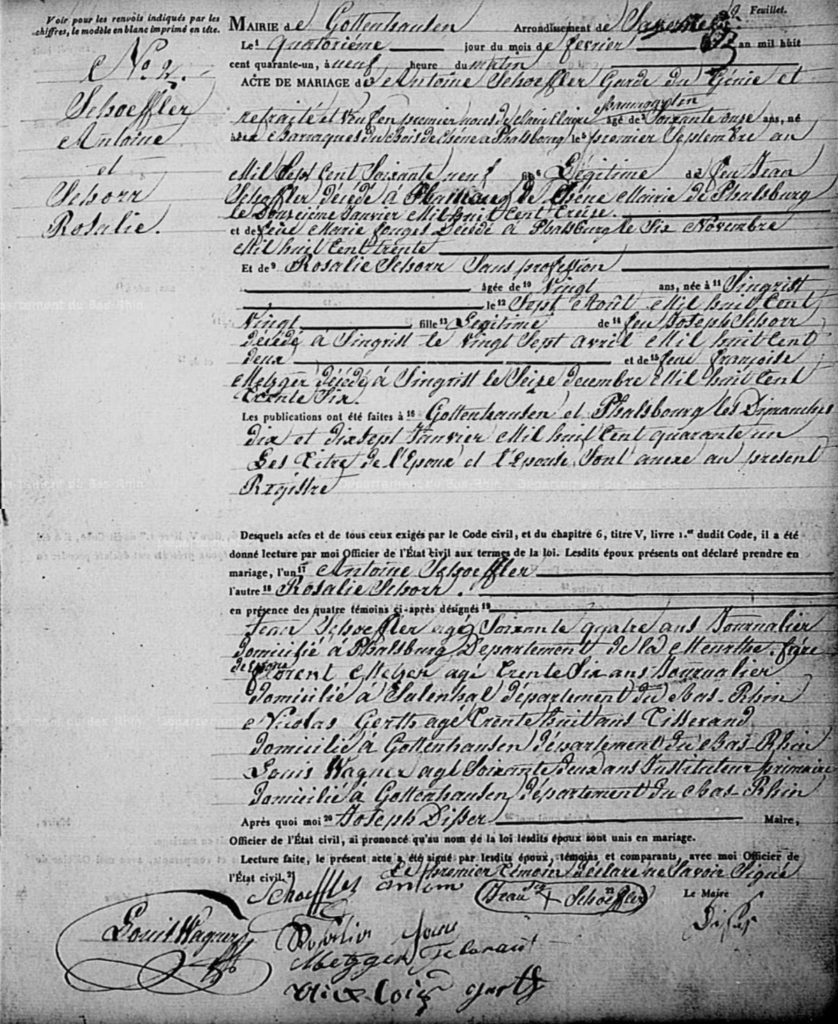 Voir pour les renvois indiqués par les
chiffres, le modèle en blanc imprimé en tête.
Feuillet.
No. 2.
Schoeffler
Antoine
et
Schorr
Rosalie.
MAIRIE de Gottenhausen Arrondissement de
Le Quatorzième jour du mois de fevrier an mil huit
cent quarante-un, à neuf heure du matin
ACTE DE MARIAGE de Antoine Schoeffler Garde du Génie et
retraité et Veuf en premier noces de Claire agé de Soixante onze ans, né
Baraques du Bois de Chêne a Phalsbourg le premier Septembre an
Mil Sept Cent Soixante neuf fils Légitime de feu Jean
Schoeffler décédé à de Chêne Mairie de Phalsburg
le Douzième Janvier Mil huit Cent Treize.
et de feue Marie décédé a Phalsburg le Six Novembre
Mil huit Cent trente
Et de Rosalie Schorr Sans profession
âgée de Vingt ans, née à Singrist
le Sept Août Mil huit Cent
Vingt fille Legitime de feu Joseph Schorr
décédé à Singrist le vingt Sept avril Mil huit Cent
deux et de feue françoise
Metzger décédé à Singrist le Seize decembre Mil huit Cent
trente Six.
Les publications ont été faites à Gottenhausen et Phalsbourg les Dimanches
dix et dix Sept Janvier Mil huit Cent quarante un
Les titre de l'Epoux et l'Epouse Sont anexe au present
Registre
Desquels actes et de tous ceux exigés par le Code civil, et du chapitre 6, titre V, livre 1.er dudit Code, il a été
donné lecture par moi Officier de l'État civil aux termes de la loi. Lesdits époux présents ont déclaré prendre en
mariage, l'un 17 Antoine Schoeffler
l'autre 18 Rosalie Schorr.
en présence des quatre témoins ci-après désignés 19
Jean Schoeffler agé Soixante quatre ans Journalier
domicilié à Phalsburg Departement de la Meurthe. frère
de l'epoux florent Metzger agé trente Six ans Journalier
domicilié à Salenthal département du Bas-Rhin
Nicolas Gerth agé trente huit ans Tisserand
domicilié à Gottenhausen département du Bas-Rhin
Louis Wagner agé Soixante deux ans Instituteur primaire
domicilié à Gottenhausen département du Bas Rhin
Après quoi moi 20 Joseph Disser Maire,
Officier de l'État civil, ai prononcé qu'au nom de la loi lesdits époux sont unis en mariage.
Lecture faite, le présent acte a été signé par lesdits époux, témoins et comparants, avec moi Officier de
l'État civil. 21 Le premier témoin déclare ne Savoir Signé
Schoeffler antoin Jean + Schoeffler Le Maire
Louis Wagner
Metzger